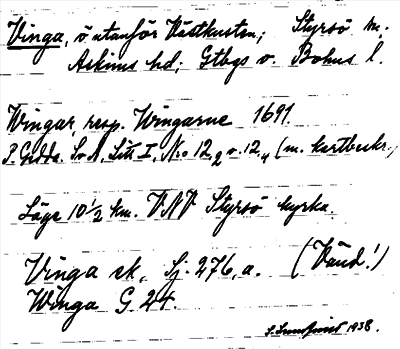 Vinga, ö utanför Västkusten; Styrsö sn.
Askims hd; Gtbgs o. Bohus l.
Wingar, resp. Wingarne 1691.
P. Gedda. S. A. Litt I, No 12, o. 12, (m. kartbeskr.,
Läge 10 1/2 km. V.N.V. Styrsö kyrka.
Vinga ek, Sj. 276, a. (Vänd!)
Winga G. 24.
1938.